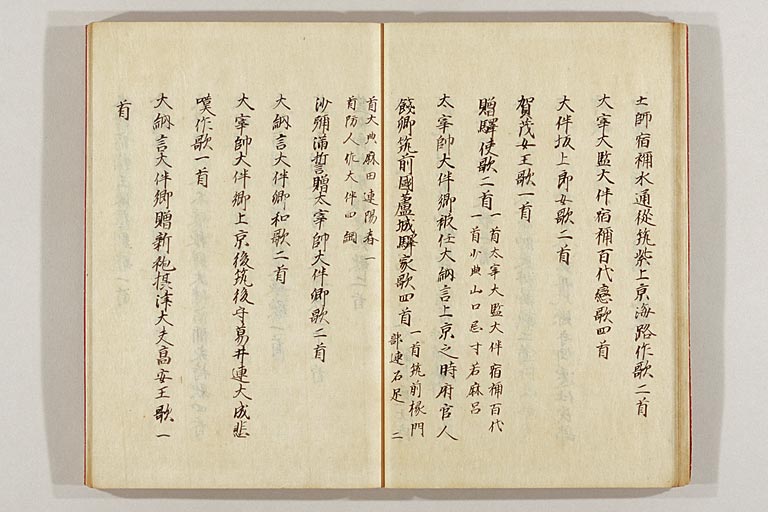 土師宿祢水通從筑紫上京海路作歌二首
大宰大監大伴宿祢百代戀歌四首
大伴坂上郎女歌二首
賀茂女王歌一首
贈驛使歌二首
一首太宰大監大伴宿祢百代
一首少典山口忌寸若麻呂
太宰帥大伴卿被任大納言上京之時府官人
餞卿筑前國蘆城驛家歌四首
一首筑前掾門
部連石足 二
首大典麻田連陽春一
首防人佑大伴四綱
沙弥滿誓贈太宰帥大伴卿歌二首
大納言大伴卿和歌二首
大宰帥大伴卿上京後筑後守葛井連大成悲
嘆作歌一首
大納言大伴卿贈新袍攝津大夫高安王歌一
首